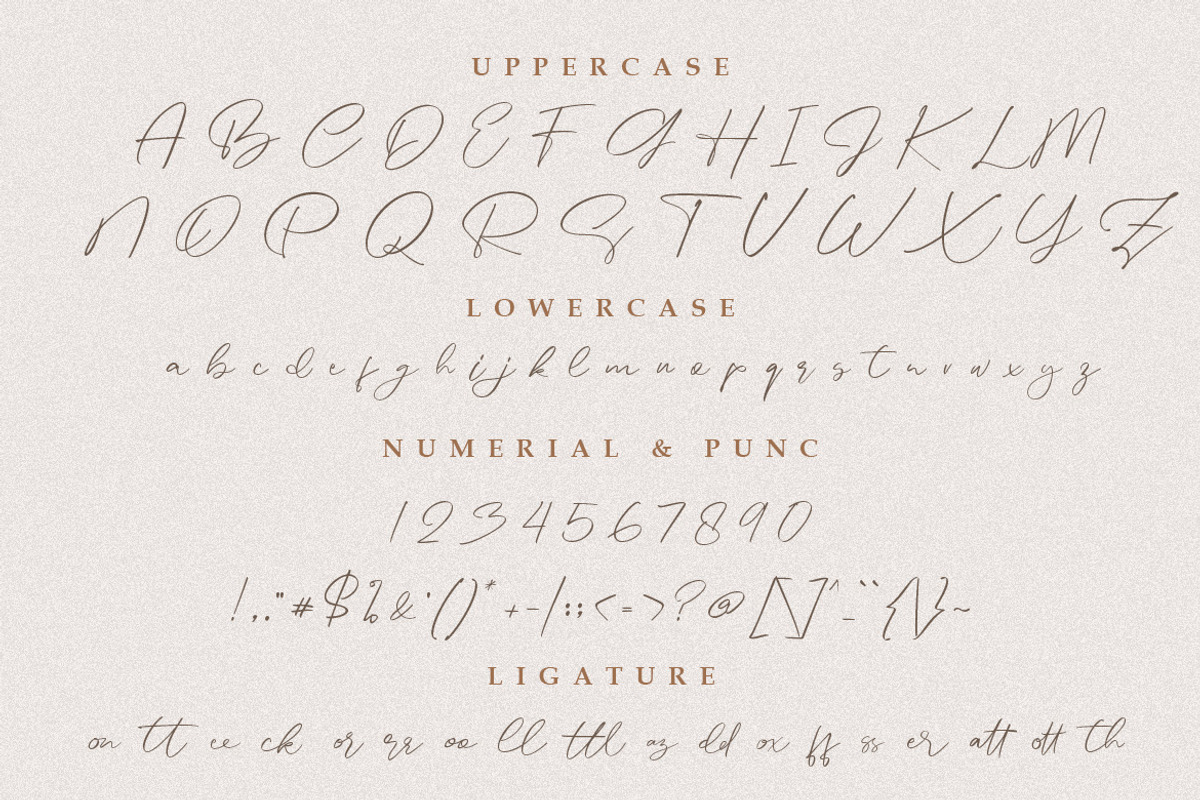 UPPERCASE
A B C D E F G H I J K L M
N O P Q R S T U V W X Y Z
LOWERCASE
a b c d e f g h i j k l m n o p q r s t u v w x y z
NUMERIAL & PUNC
1 2 3 4 5 6 7 8 9 0
! , . " # $ % & ' ( ) * + - / : ; < = > ? @ [ \ ] ^ _ ` ` { | } ~
LIGATURE
on tt ee ck or rr oo ll ttl az dd ox ff ss er att ott th